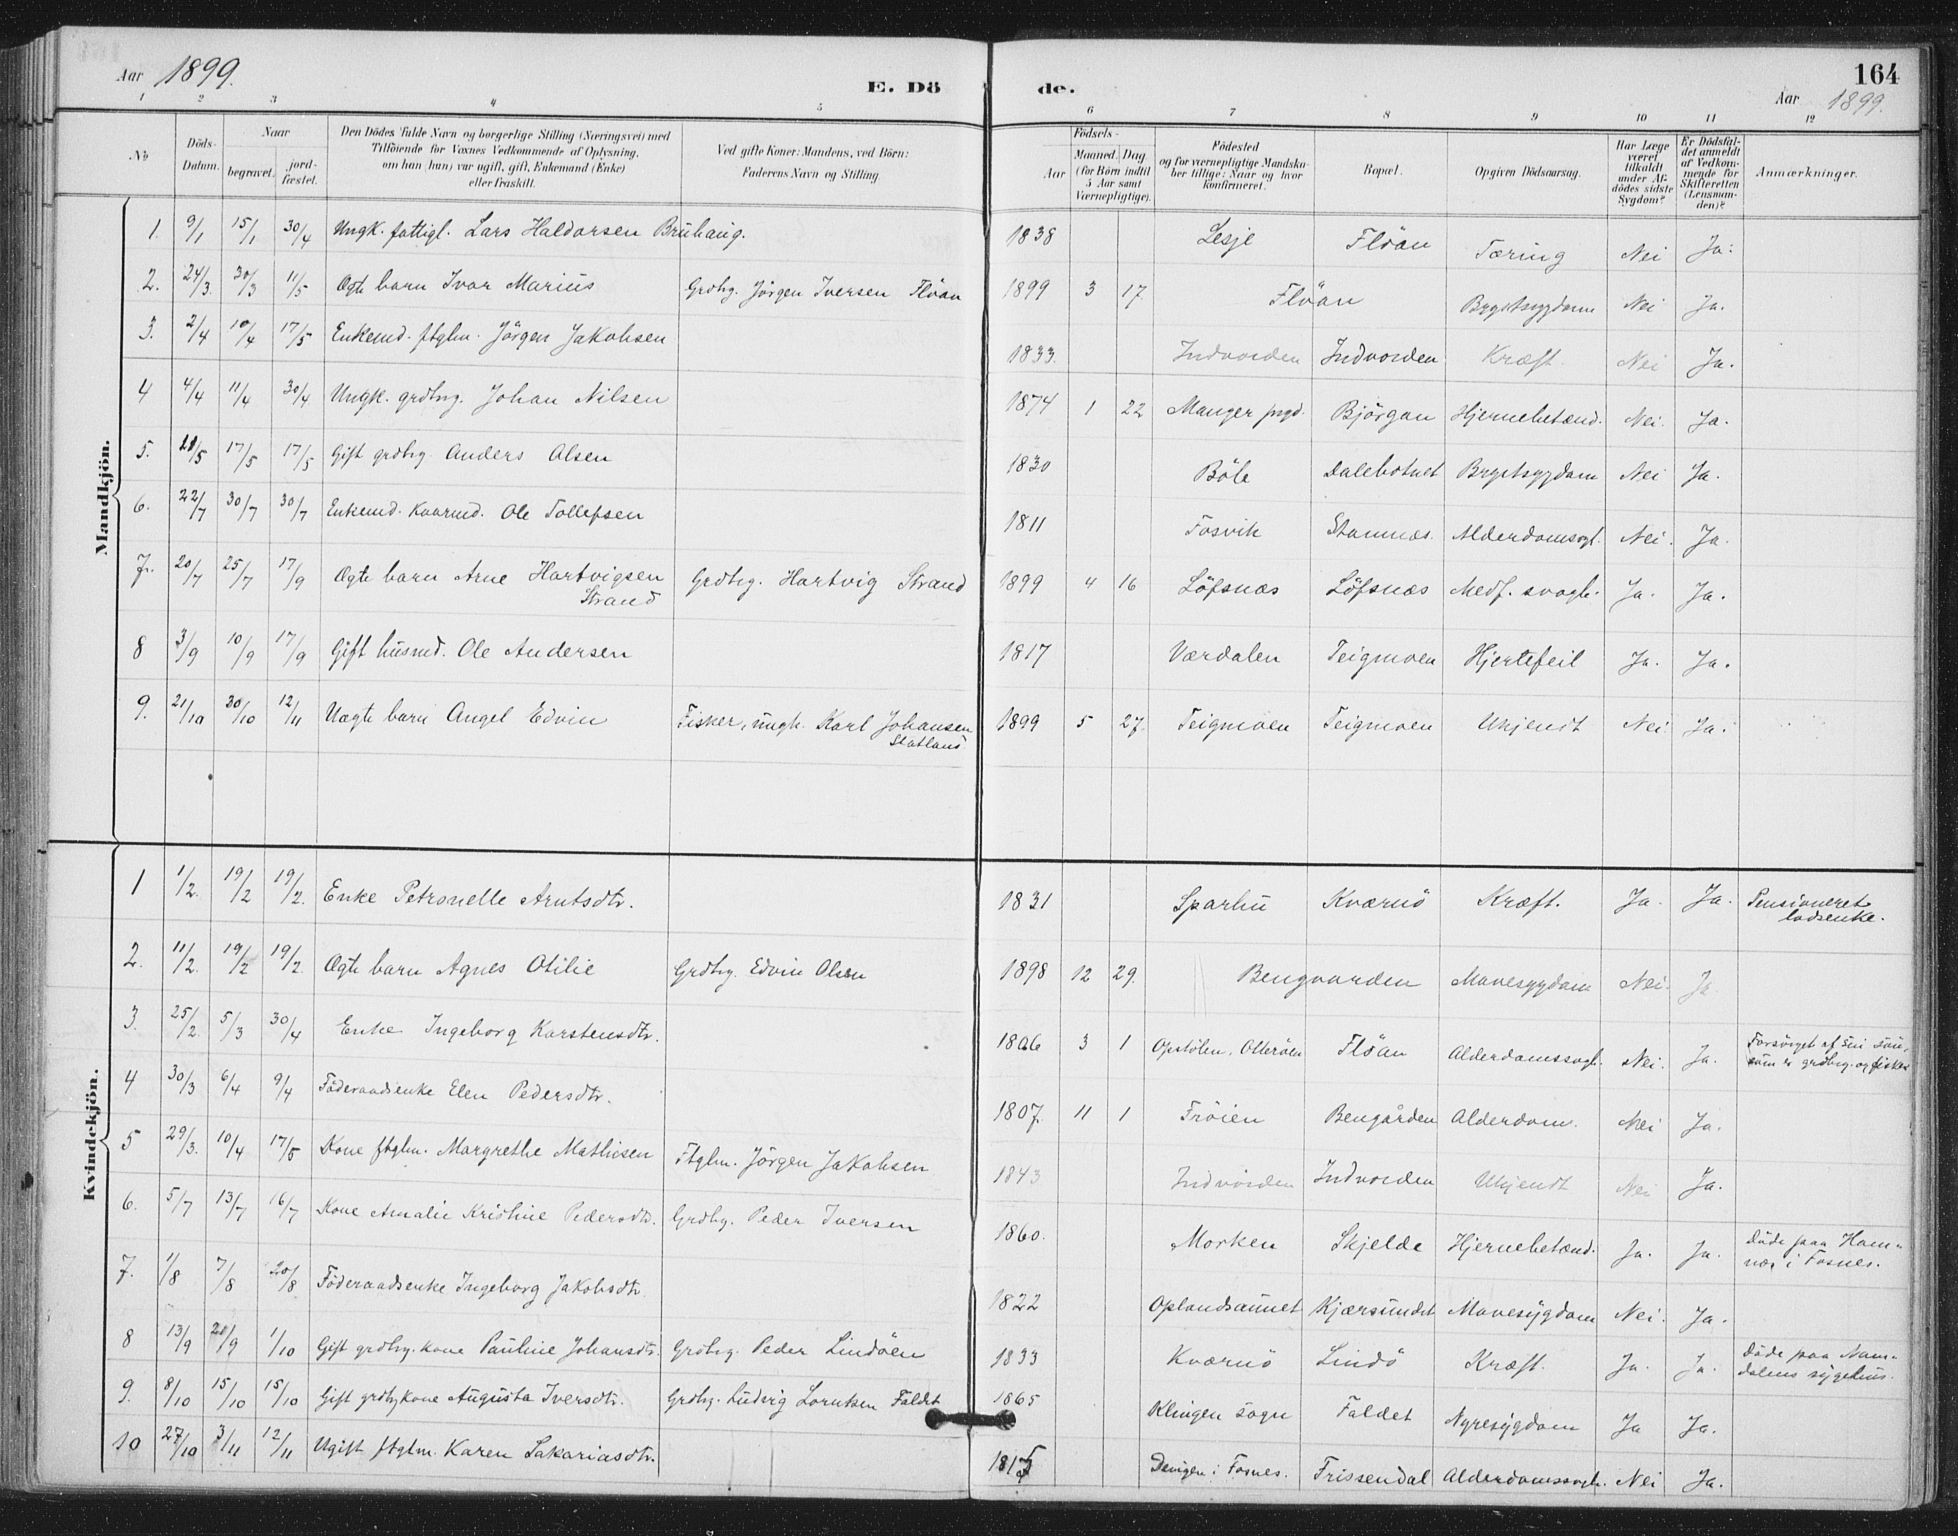 Aar 1899. E. Dö de. 164
Aar 1899.
1 2 3 4 5 6 7 8 9 10 11 12
No Döds-Datum. Naar begravet. jord-fæstet. Den Dödes fulde Navn og borgerlige Stilling (Næringsvei) med Tilföiende for Voxnes Vedkommende af Oplysning, om han (hun) var ugift, gift, Enkemand (Enke) eller fraskilt. Ved gifte Koner: Mandens, ved Börn: Faderens Navn og Stilling. Födsels- Aar Maaned. Dag (for Börn indtil 5 Aar samt Værnepligtige). Födested og for værnepligtige Mandskaber tillige: Naar og hvor konfirmeret. Bopæl. Opgiven Dödsaarsag. Har Læge været tilkaldt under Afdödes sidste Sygdom? Er Dödsfaldet anmeldt af Vedkommende for Skifteretten (Lensmanden)? Anmærkninger.
Mandkjön.
1 9/1 15/1 30/4 Ungk. fattigl. Lars Haldorsen Bruhaug. 1838 Lesje Flöan Tæring Nei Ja.
2. 24/3. 30/3 11/5 Ægte barn Ivar Marius Grdbrg. Jörgen Iversen Flöan 1899 3 17 Flöan Brystsygdom Nei Ja.
3. 2/4 10/4 17/5 Enkemd. ftglm. Jörgen Jakobsen 1833. Indvorden Indvorden Kræft. Nei Ja.
4 4/4 11/4 30/4 Ungk. grdbrg. Johan Nilsen 1874 1 22 Manger prgd. Björgan Hjernebetænd. Nei. Ja.
5. 17/5 17/5 Gift grdbrg. Anders Olsen 1830 Böle Dalebotnet Brystsygdom Nei Ja.
6. 22/7 30/7 30/7 Enkemd. Kaarmd. Ole Tollefsen 1811 Fosvik Stamnæs. Alderdomssvgl. Nei. Ja.
7. 20/7 25/7 17/9 Ægte barn Arne Hartvigsen Strand Grdbrg. Hartvig Strand 1899 4 16 Löfsnæs Löfsnæs Medf. svagh. Ja. Ja.
8 3/9 10/9 17/9 Gift husmd. Ole Andersen 1817 Værdalen Teigmoen Hjertefeil Ja. Ja.
9. 21/10 30/10 12/11 Uægte barn Angel Edvin Fisker, ungk. Karl Johansen Statland 1899 5 27. Teigmoen Teigmoen Ukjendt Nei. Ja.
Kvindekjön.
1 1/2. 19/2 19/2. Enke Petronelle Arntsdtr. 1831 Sparbu Kværnö Kræft. Ja. Ja. Pensioneret lodsenke.
2. 11/2. 19/2 19/2. Ægte barn Agnes Otilie Grdbrg. Edvin Olsen 1898 12 29. Bengaarden Mavesygdom Nei. Ja
3. 25/2. 5/3 30/4 Enke Ingeborg Karstensdtr. 1806 3 1 Opstölen, Otteröen Flöan Alderdomssvgh. Nei. Ja. Forsörget af sin sön, som er grdbrg. og fisker
4 30/3 6/4 9/4 Föderaadsenke Elen Pedersdtr. 1807. 11 1 Fröien Bengården Alderdom. Nei Ja.
5 29/3. 10/4 17/5 Kone ftglm. Margrethe Mathisen Ftglm. Jörgen Jakobsen 1843 Indvorden Indvorden Ukjendt Nei Ja.
6. 5/7 13/7 16/7 Kone Amalie Kristine Pedersdtr. Grdbrg. Peder Iversen 1860. Morken Skjelde Hjernebetænd. Ja. Ja. Döde paa Hamnæs i Fosnes.
7. 1/8 7/8 20/8 Föderaadsenke Ingeborg Jakobsdtr. 1822 Oplandsaunet Kjærsundet Mavesygdom Nei. Ja.
8 13/9 21/9 1/10 Gift grdbrg. kone Pauline Johansdtr. Grdbrg. Peder Lindöen 1833 Kværnö Lindö Kræft. Ja. Ja. Döde paa Namdalens sygehus.
9. 8/10 15/10 15/10 Gift grdbrgkone Augusta Iversdtr. Grdbrg. Ludvig Lorntsen Faldet 1865 Klingen sogn Faldet Nyresygdom Ja Ja.
10 27/10 3/11 12/11 Ugift ftglm. Karen Sakariasdtr. 1815 i Fosnes. Frissendal Alderdomssvgh. Nei Ja.